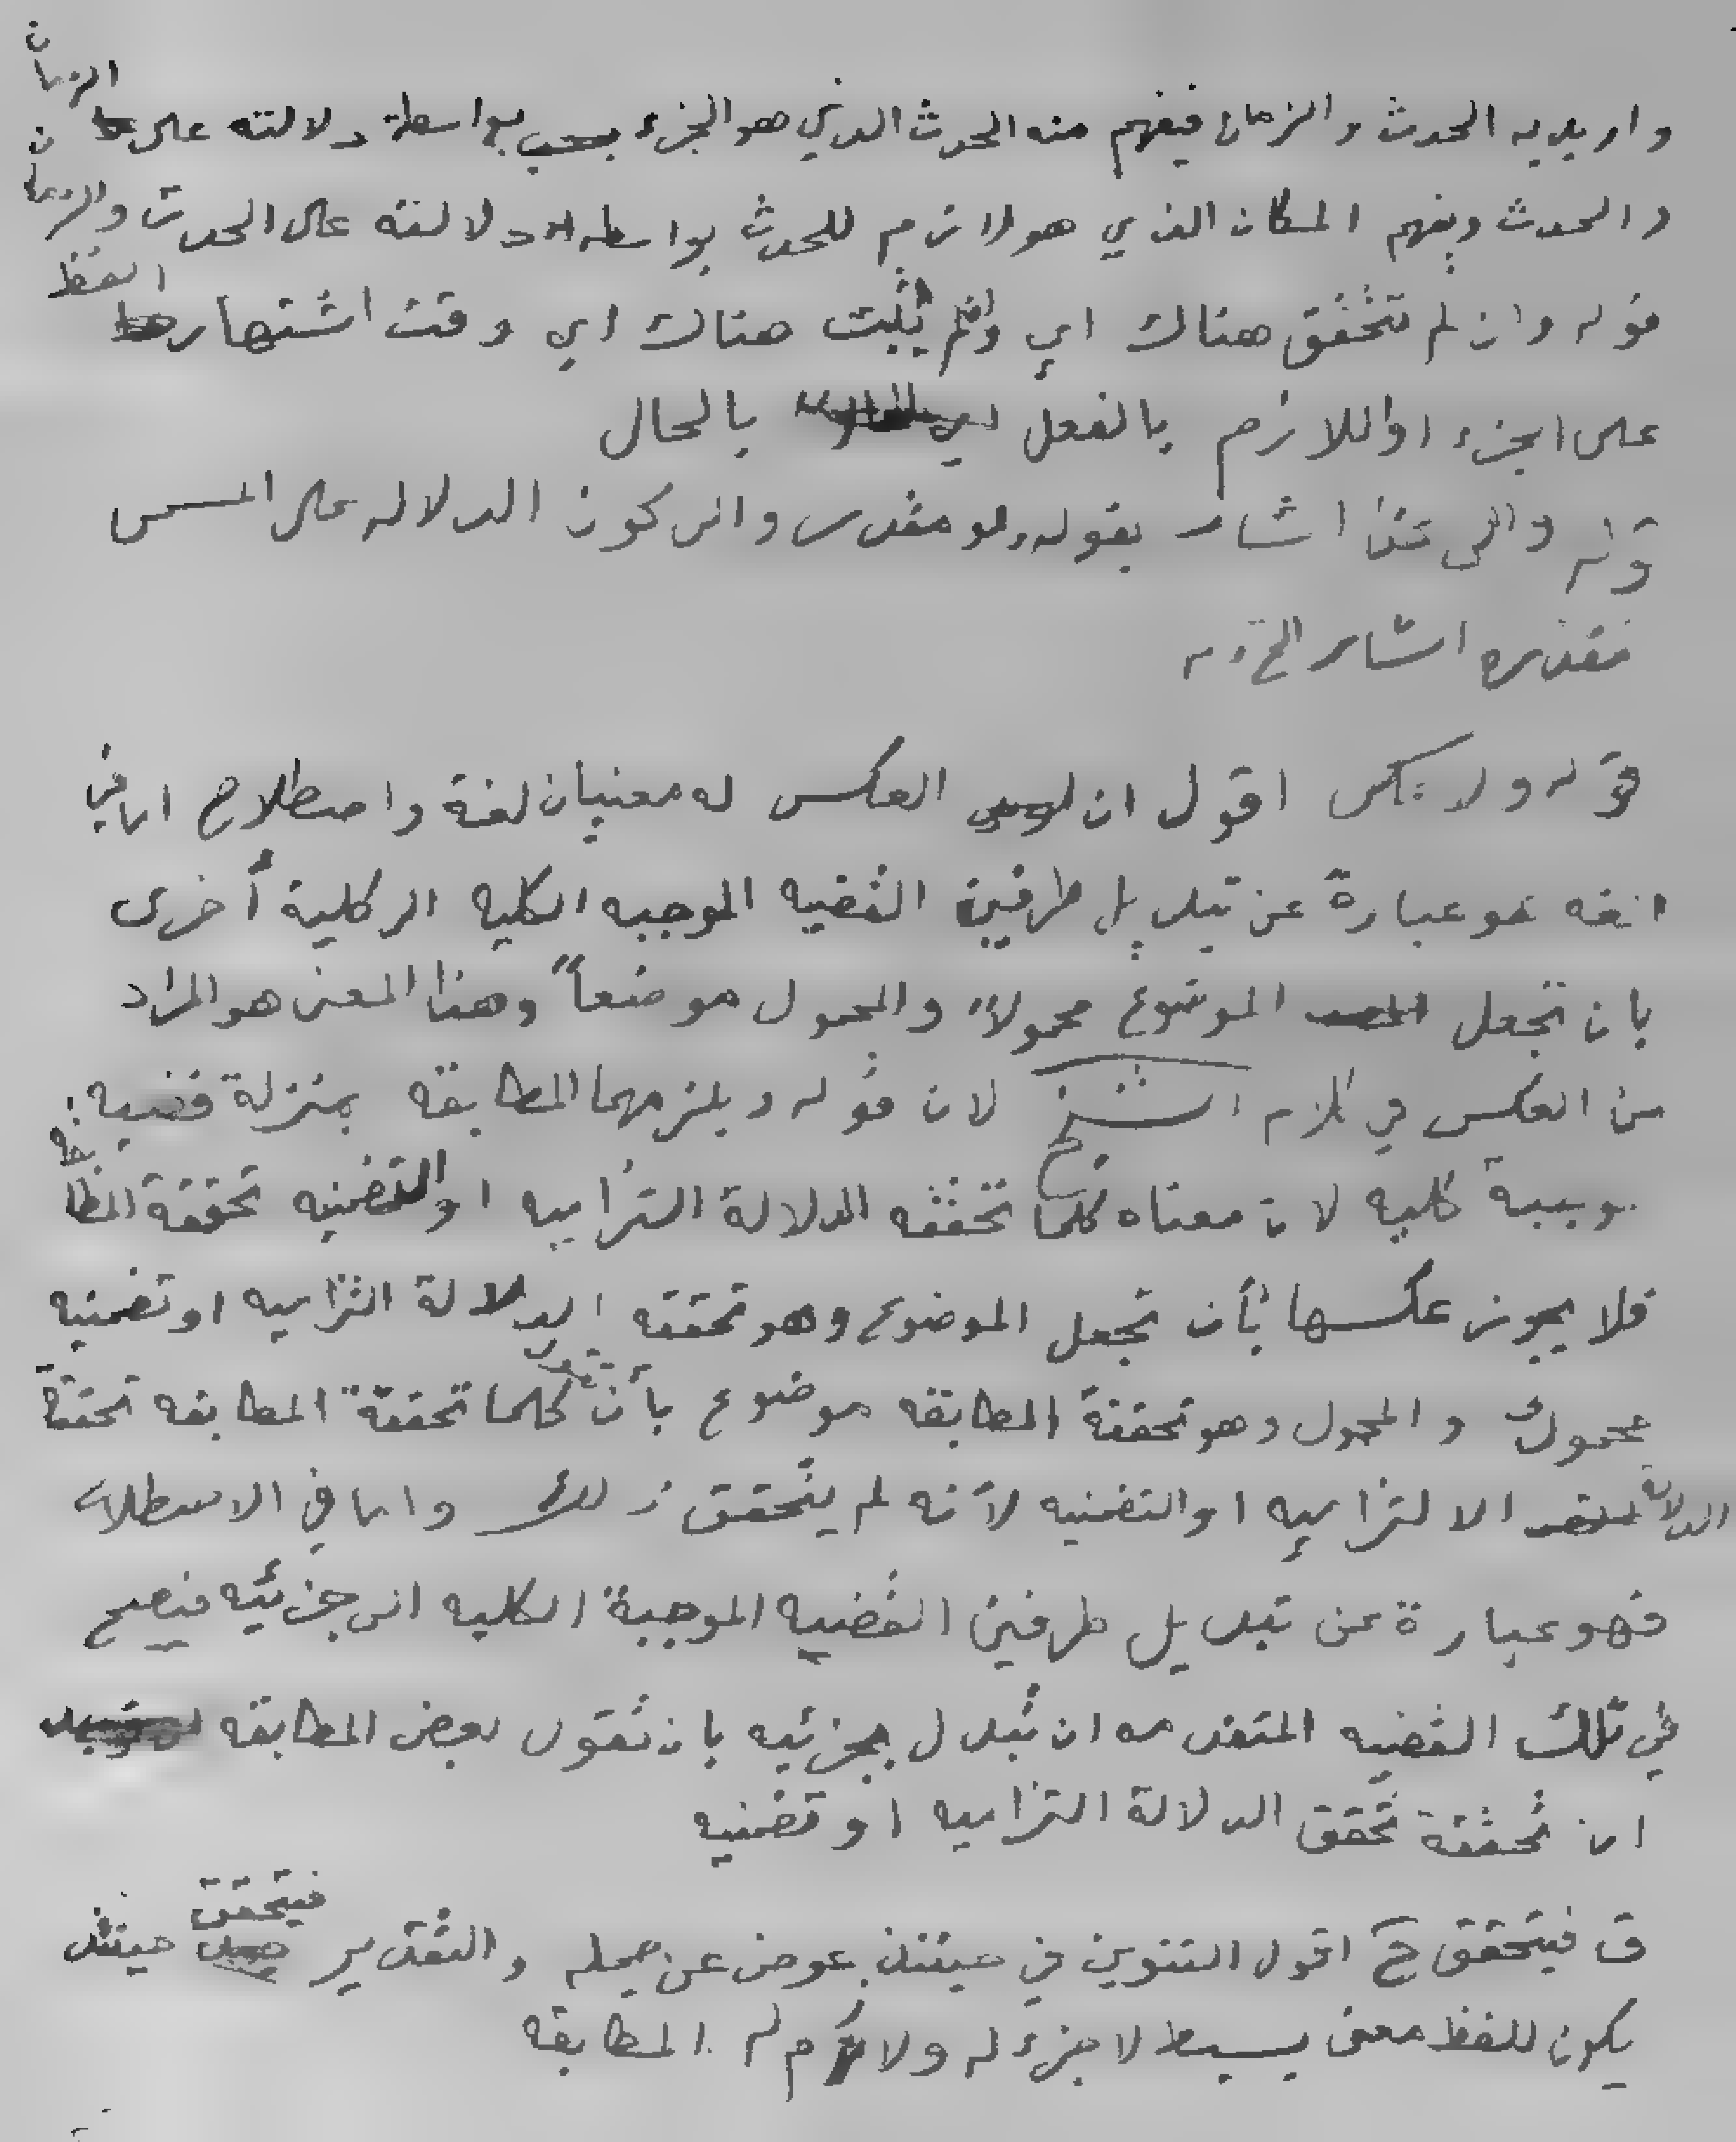 واريد به الحدث والزمان فيفهم منه الحدث الذي هو الجزء بواسطة دلالته على الزمان
والحدث ويفهم المكان الذي هو لازم للحدث بواسطه دلالته على الحدث والزمان
قوله وان لم تتحقق هناك اي وان لم يثبت هناك اي وقت اشتهار اللفظ
على الجزء او اللازم بالفعل بالحال
قوله والى هذا اشار بقوله ولو مقدر والى كون الدلاله على المسمى
مقدره اشار الخ
قوله ولا عكس اقول ان العكس له معنيان لغة واصطلاح اما في
اللغه هو عبارة عن تبديل طرفين القضيه الموجبه الكليه الى كلية أخرى
بان تجعل الموضوع محمولاً والمحمول موضعاً وهذا المعنى هو المراد
من العكس في كلام الشيخ لان قوله ويلزمهما المطابقه بمنزلة قضيه
موجبة كليه لان معناه كلما تحققه الدلالة التزاميه او التضمنيه تحققة المطابقه
فلا يجوز عكسها بأن تجعل الموضوع وهو تحققه الدلالة التزاميه او تضمنيه
محمول والمحمول وهو تحققة المطابقه موضوع بأن تقول كلما تحققة المطابقه تحققة
الدلالة الالتزاميه او التضمنيه لأنه لم يتحقق ذلك واما في الاصطلاح
فهو عبارة عن تبديل طرفين القضيه الموجبة الكليه الى جزئيه فيصح
في تلك القضيه المتقدمه ان تبدل بجزئيه بان تقول بعض المطابقه
ان تحققة تحقق الدلالة التزاميه او تضمنيه
ق فيتحقق ح اقول التنوين في حينئذ عوض عن جمله والتقدير فيتحقق حينئذ
يكون للفظ معنى بسيط لا جزء له ولا لازم له المطابقه